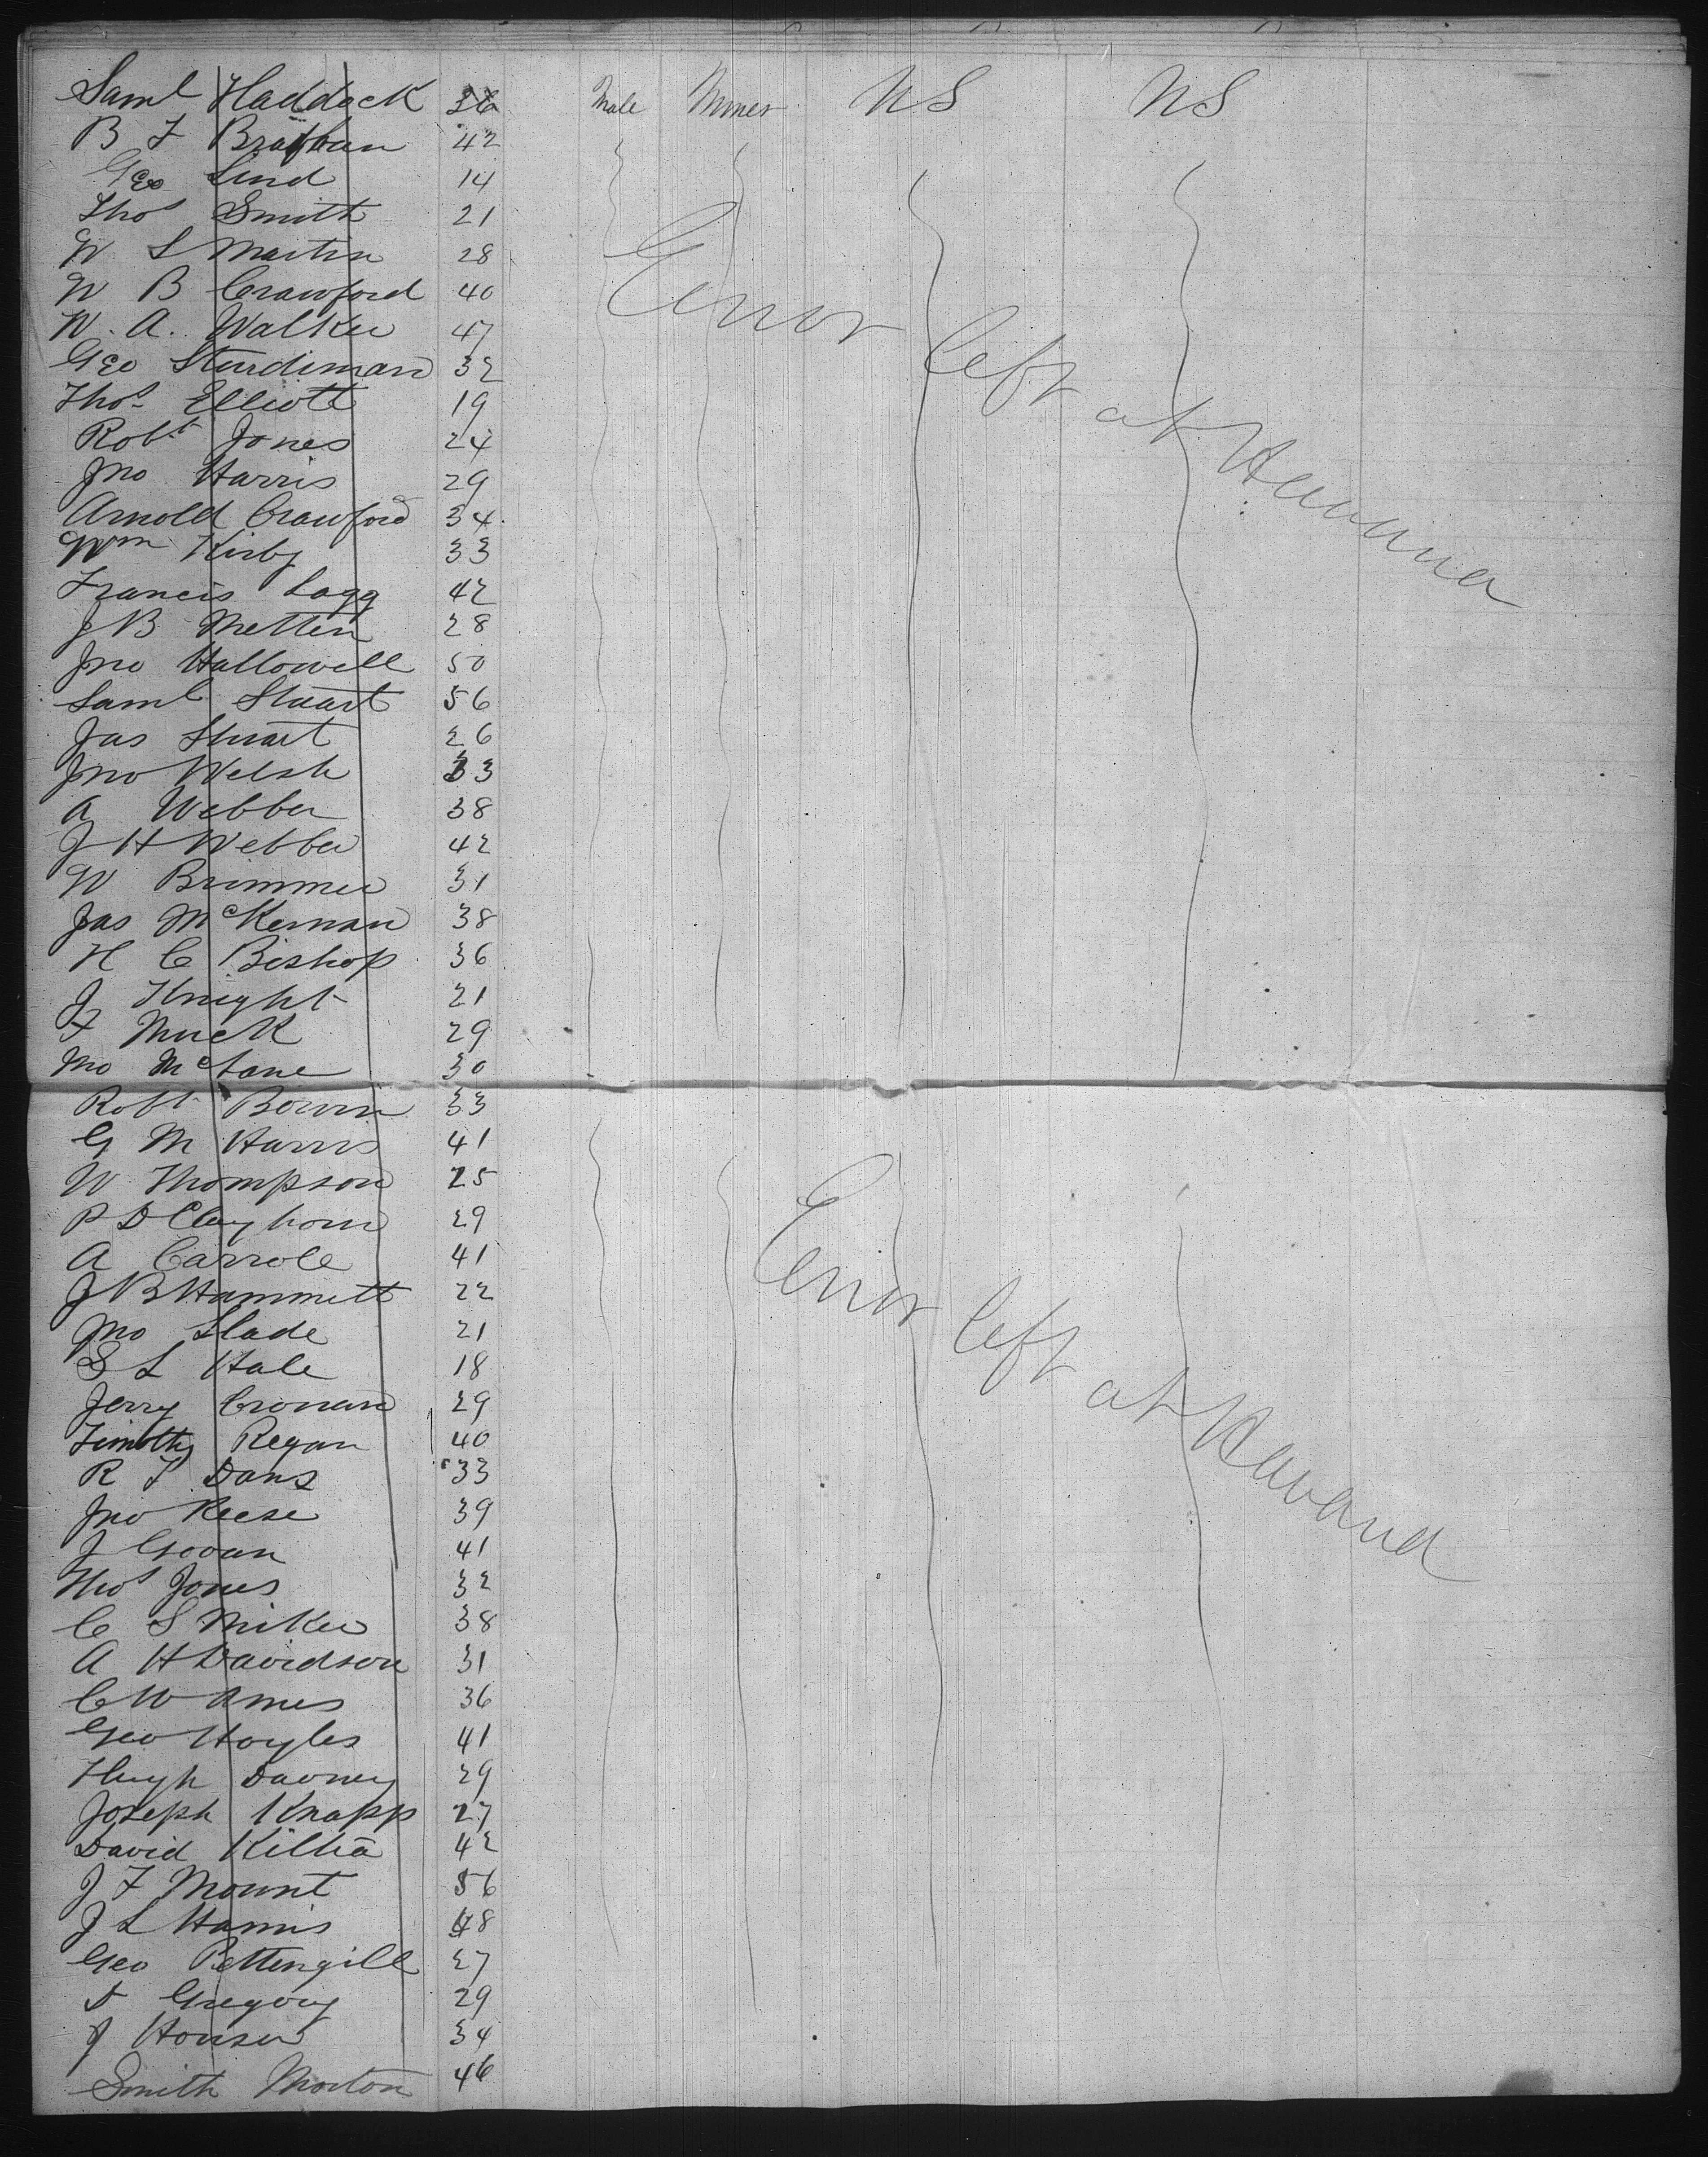 Saml Haddock 36 Male Miner US US
B F 42
Geo Lind 14
Thos Smith 21
W S Martin 28
W B Crawford 40
W. A. Walker 47
Geo Sturdiman 32
Thos Elliott 19
Robt Jones 24
Jno Harris 29
Arnold Crawford 34
Wm Kirby 33
Francis Lagg 42
J B Metten 28
Jno Hallowell 50
Saml Stuart 56
Jas Stuart 26
Jno Welsh 33
A Webber 38
J H Webber 42
W Brimmer 31
Jas McKernan 38
H C Bishop 36
J Knight 21
F Muck 29
Jno McLane 30
Error left at Havana
Robt Bowen 33
G M Harris 41
W Thompson 25
P D Clayhorn 29
A Carrole 41
J B Hammett 22
Jno Slade 21
S L Hale 18
Jerry Cronan 29
Timothy Regan 40
R F Davis 33
Jno Reese 39
J 41
Thos Jones 32
C S Miker 38
A H Davidson 31
C W Ames 36
Geo Hoyles 41
Hugh Davney 29
Joseph Knapp 27
David Killia 42
J F Mount 56
J L Harris 48
Geo Pettengill 27
D Gregory 29
J Houser 34
Smith Morton 46
Error left at Havana